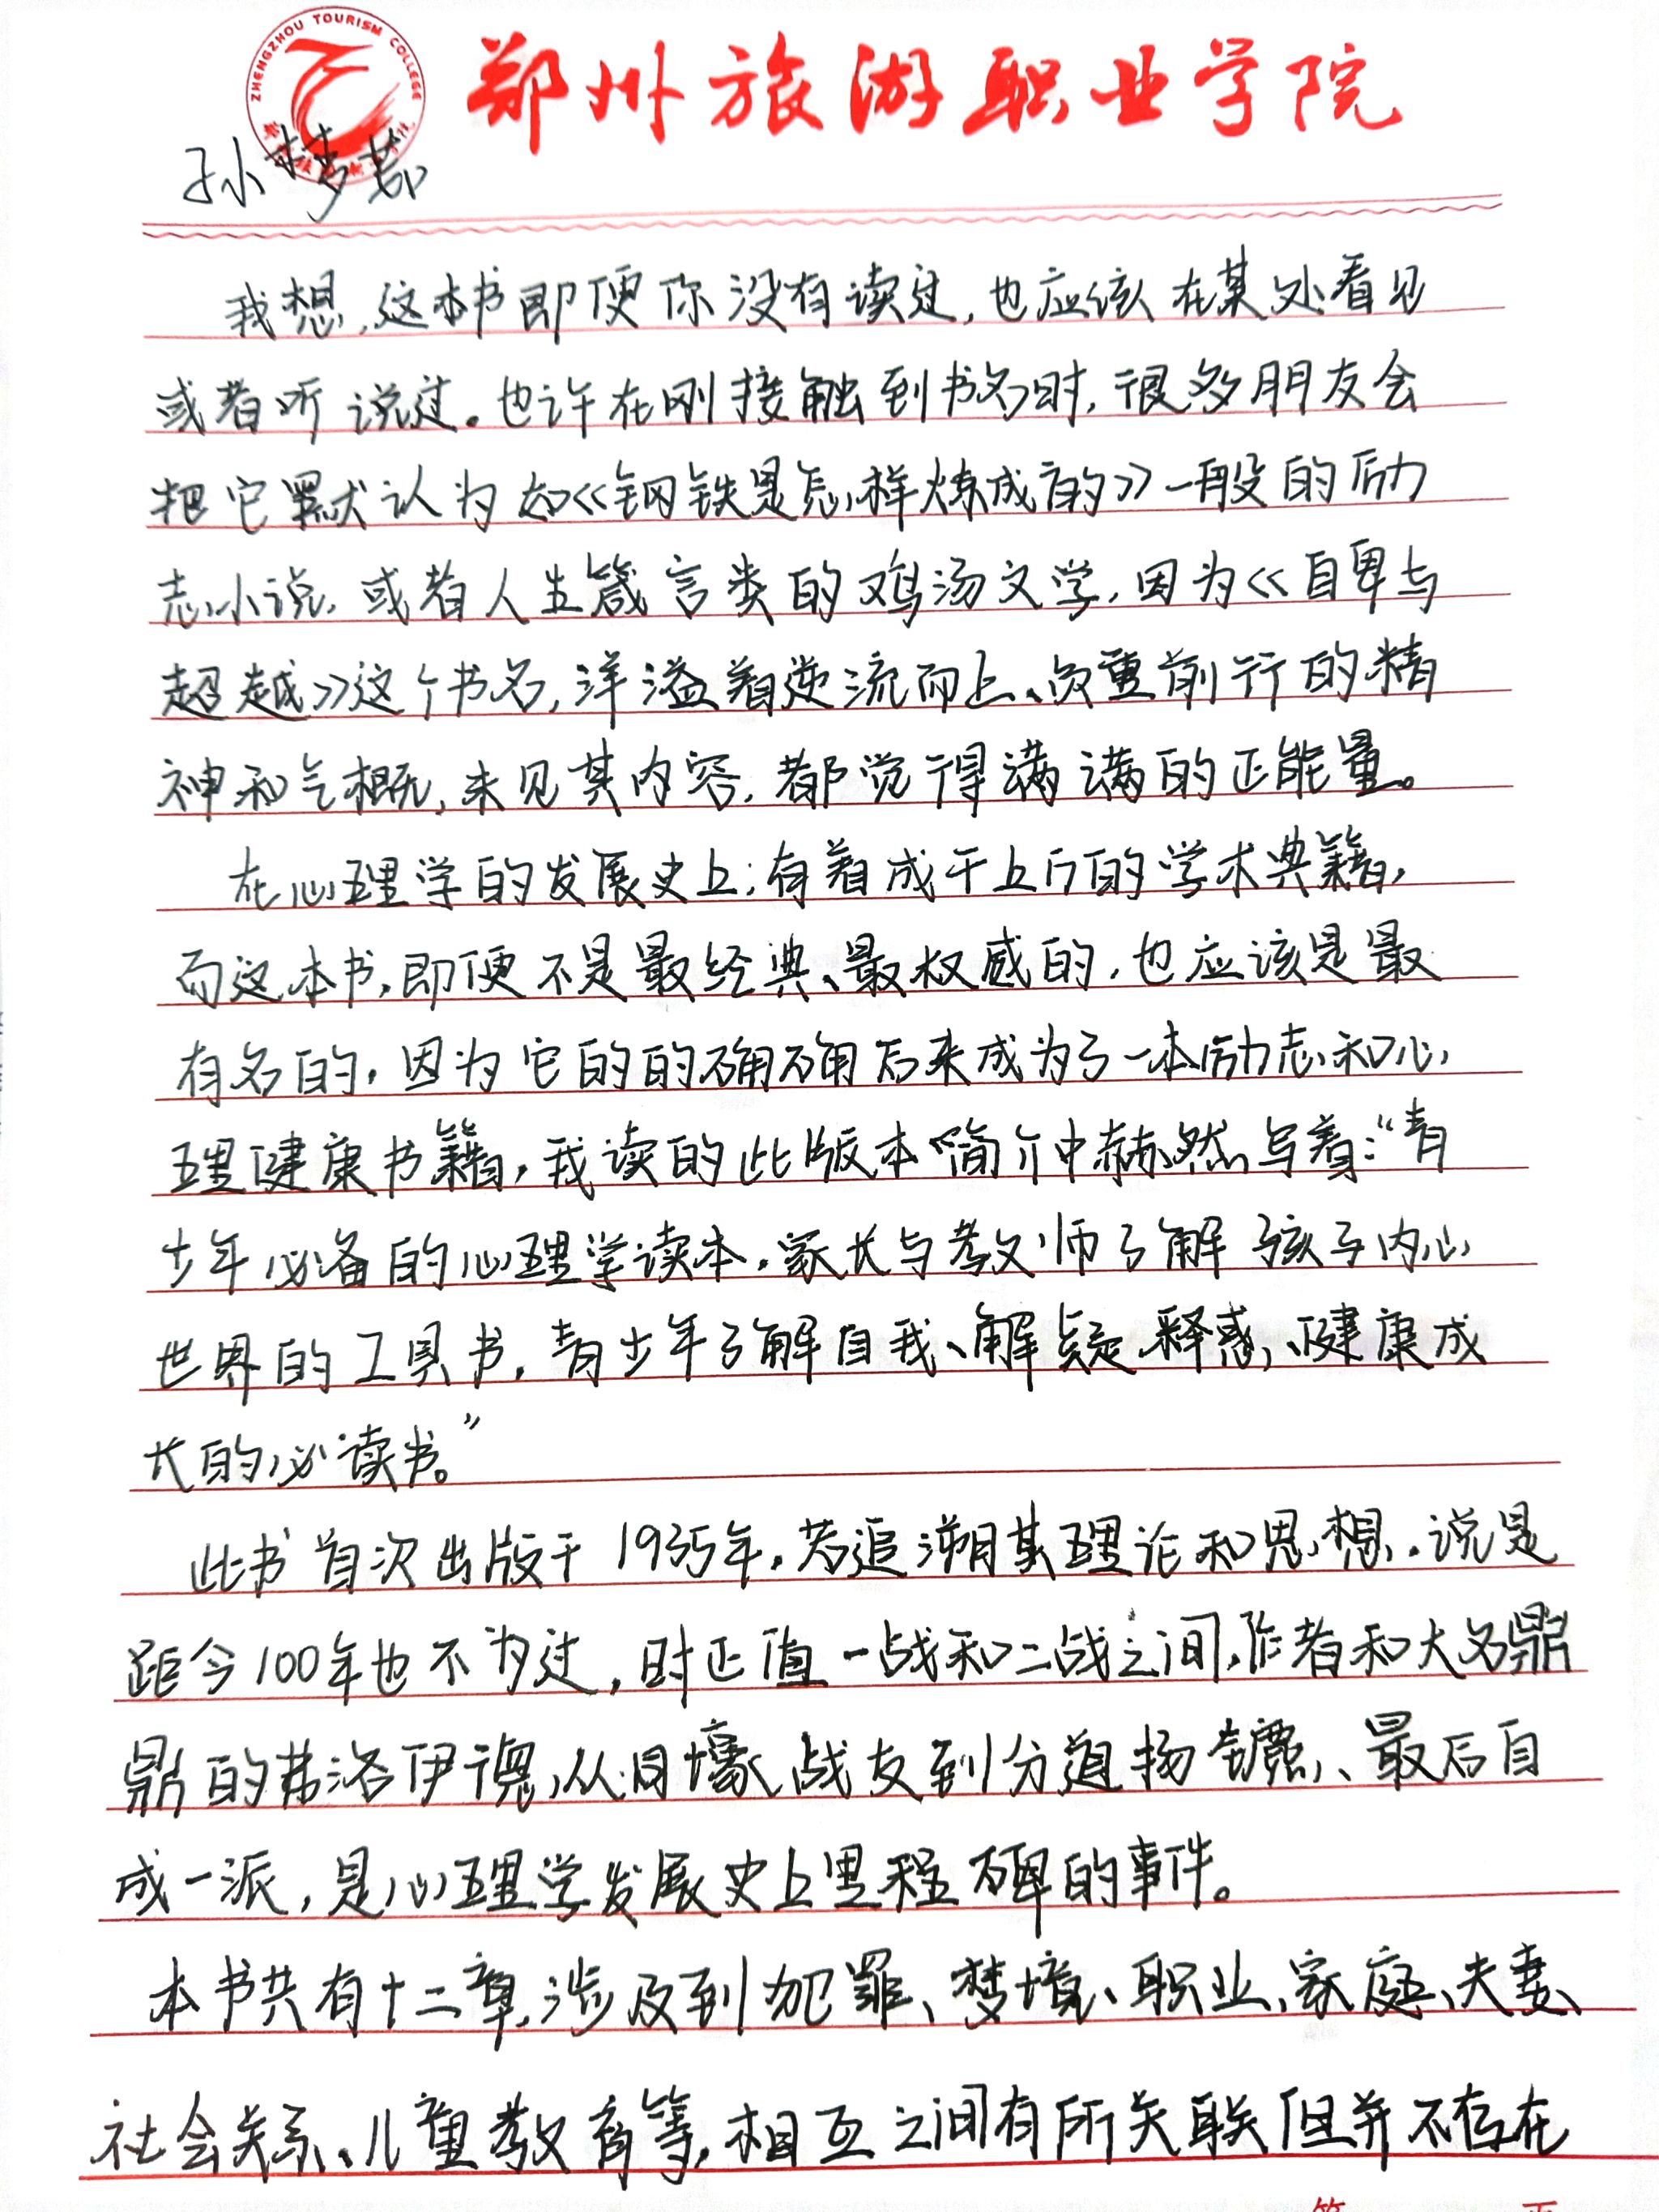 ZHENGZHOU TOURISM COLLEGE
郑州旅游职业学院
孙梦茹
我想,这本书即便你没有读过,也应该在某处看见
或者听说过。也许在刚接触到书名时,很多朋友会
把它默认为如《钢铁是怎样炼成的》一般的励
志小说,或者人生箴言类的鸡汤文学,因为《自卑与
超越》这个书名,洋溢着逆流而上、负重前行的精
神和气概,未见其内容,都觉得满满的正能量。
在心理学的发展史上;有着成千上万的学术典籍,
而这本书,即便不是最经典、最权威的,也应该是最
有名的,因为它的的确确后来成为了一本励志和心
理健康书籍,我读的此版本简介中赫然写着:“青
少年必备的心理学读本,家长与教师了解孩子内心
世界的工具书,青少年了解自我、解疑释惑、健康成
长的必读书。”
此书首次出版于1935年,若追溯其理论和思想,说是
距今100年也不为过,时正值一战和二战之间,作者和大名鼎
鼎的弗洛伊德,从同壕战友到分道扬镳、最后自
成一派,是心理学发展史上里程碑的事件。
本书共有十二章,涉及到犯罪、梦境、职业、家庭、夫妻、
社会关系、儿童教育等,相互之间有所关联但并不存在